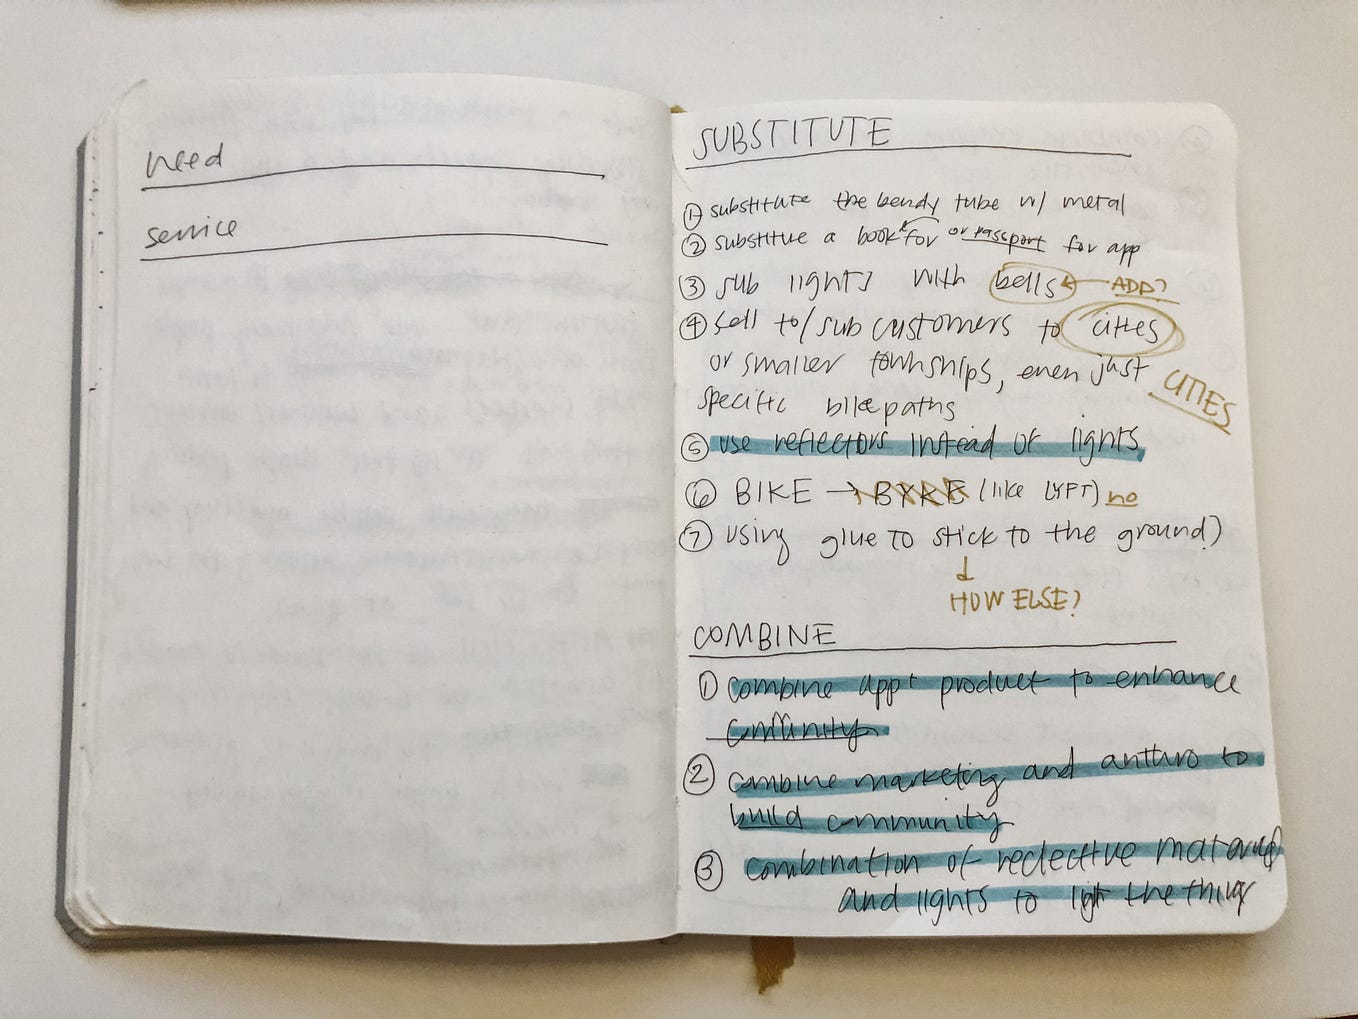 need
service
SUBSTITUTE
① substitute the bendy tube w/ metal
② substitue a book for or passport for app
③ sub lights with bells ← ADD?
④ sell to/sub customers to cities
or smaller townships, even just
specific bike paths
CITIES
⑤ use reflectors instead of lights
⑥ BIKE → BYKE (like LYFT) no
⑦ using glue to stick to the ground)
↓
HOW ELSE?
COMBINE
① combine app + product to enhance
② combine marketing and anthro to
build community
③ combination of reclective
and lights to light the thing